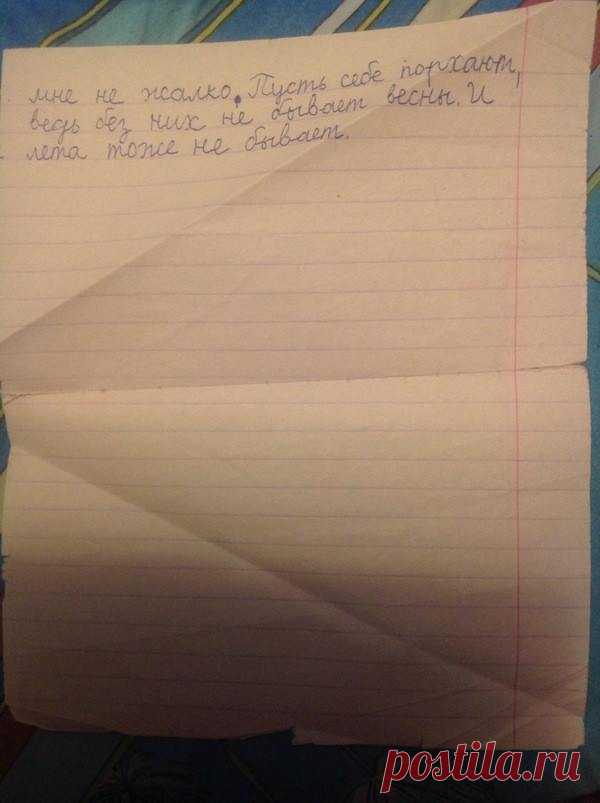 мне не жалко. Пусть себе порхают,
ведь без них не бывает весны. И
лета тоже не бывает.
postila.ru